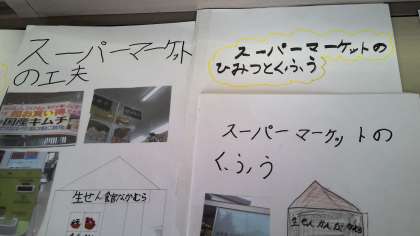 スーパーマーケット
の工夫
お買い得
国産キムチ
生せん館なかむら
スーパーマーケットの
ひみつとくふう
スーパーマーケットの
くふう